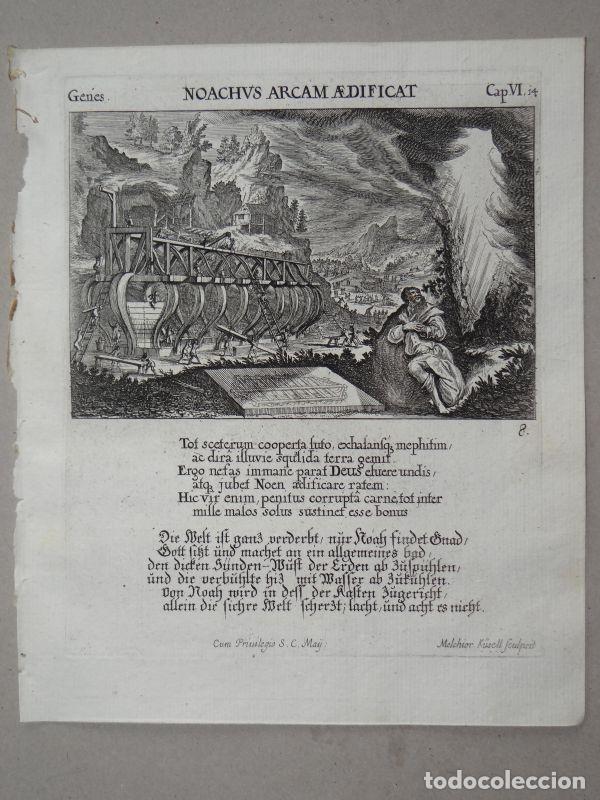 Genes.
NOACHVS ARCAM ÆDIFICAT
Cap VI. 14
8.
Tot scelerum cooperta luto, exhalansq, mephitim/
ac dirâ illuvie squalida terra gemit.
Ergo nefas immane parat Deus eluere undis,
atq, jubet Noen ædificare ratem:
Hic vir enim, penitus corruptâ carne, tot inter
mille malos solus sustinet esse bonus
Die Welt ist ganz verderbt/ nur Noah findet Gnad/
Gott sitzt und machet an ein allgemeines bad/
den dicken Sünden-Wust der Erden ab Zuspühlen/
und die verbühlte hiz mit Wasser ab Zükühlen.
Von Noah wird in dess der Kasten Zugericht/
allein die sichre Welt scherzt; lacht/ und acht es nicht.
Cum Privilegio S. C. Maij.
Melchior Küsell sculpsit
todocoleccion